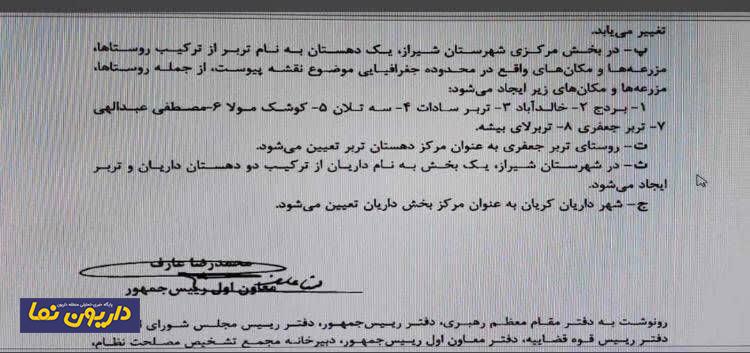 تغییر می‌یابد.
پ- در بخش مرکزی شهرستان شیراز، یک دهستان به نام تربر از ترکیب روستاها،
مزرعه‌ها و مکان‌های واقع در محدوده جغرافیایی موضوع نقشه پیوست، از جمله روستاها،
مزرعه‌ها و مکان‌های زیر ایجاد می‌شود:
۱- بردج ۲- خالدآباد ۳- تربر سادات ۴- سه تلان ۵- کوشک مولا ۶-مصطفی عبدالهی
۷- تربر جعفری ۸- تربرلای بیشه.
ت- روستای تربر جعفری به عنوان مرکز دهستان تربر تعیین می‌شود.
ث- در شهرستان شیراز، یک بخش به نام داریان از ترکیب دو دهستان داریان و تربر
ایجاد می‌شود.
ج- شهر داریان کربان به عنوان مرکز بخش داریان تعیین می‌شود.
محمدرضا عارف
معاون اول رییس‌جمهور
پایگاه خبری تحلیلی منطقه داریون
داریون نما
رونوشت به دفتر مقام معظم رهبری، دفتر رییس‌جمهور، دفتر رییس مجلس شورای
دفتر رییس قوه قضاییه، دفتر معاون اول رییس‌جمهور، دبیرخانه مجمع تشخیص مصلحت نظام،